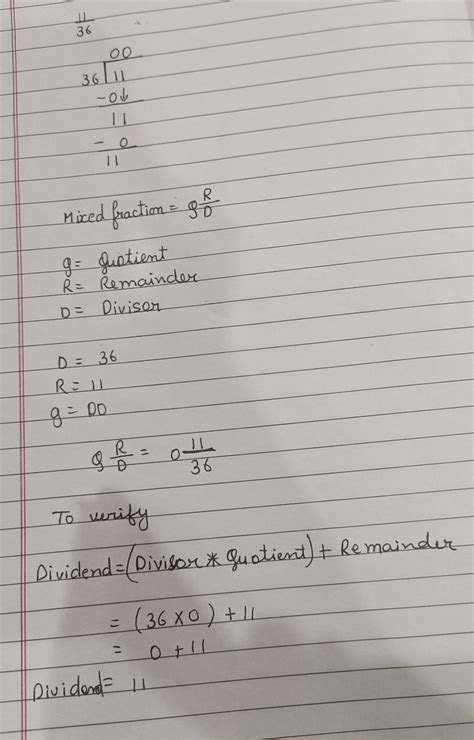 11/36
00
36 | 11
-0↓
11
- 0
11
Mixed fraction = q R/D
q = Quotient
R = Remainder
D = Divisor
D = 36
R = 11
q = 00
q R/D = 0 11/36
To verify
Dividend = (Divisor * Quotient) + Remainder
= (36 × 0) + 11
= 0 + 11
Dividend = 11